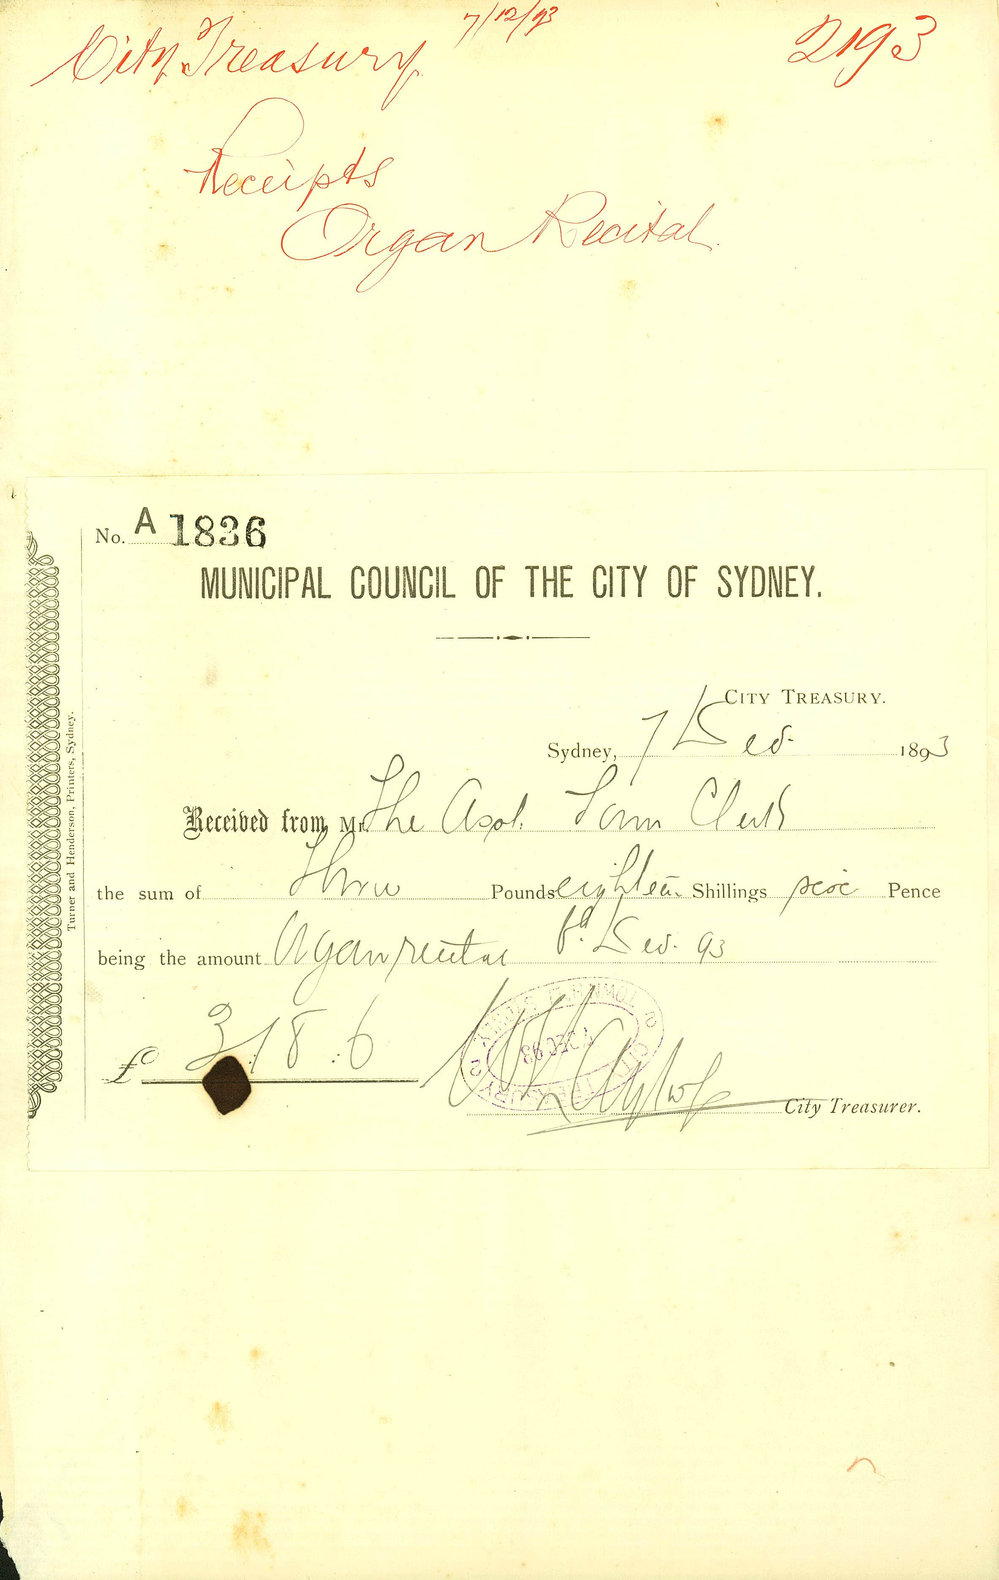 7/12/93
City Treasury 2193
Receipts
Organ Recital
No. A 1836
MUNICIPAL COUNCIL OF THE CITY OF SYDNEY.
CITY TREASURY.
Sydney, 7 Dec. 1893
Received from Mr. The Asst. Town Clerk
the sum of Three Pounds eighteen Shillings six Pence
being the amount Organ recital Dec. 93
£ 3:18:6
City Treasurer.
Turner and Henderson, Printers, Sydney.
7 DEC 93
CITY TREASURY